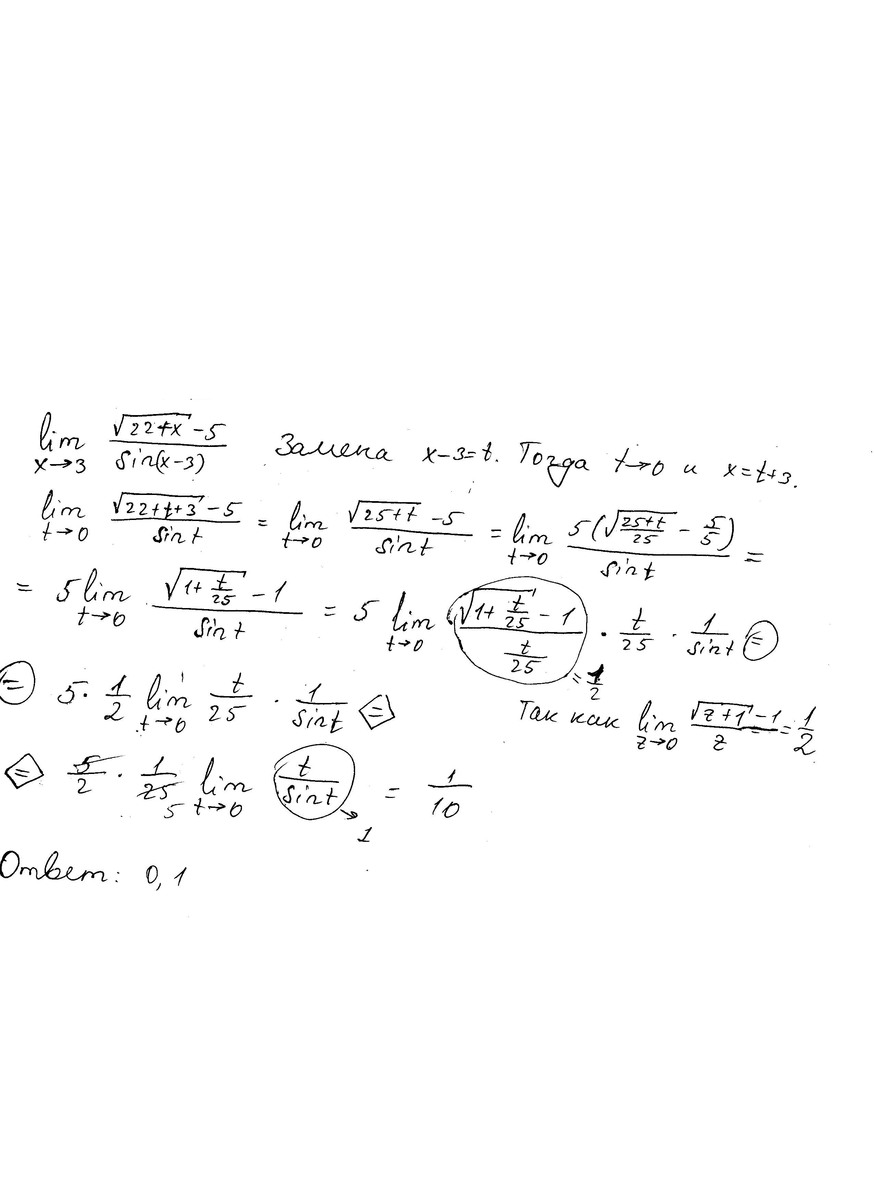 lim x→3 (√(22+x) - 5)/(sin(x-3)) Замена x-3=t. Тогда t→0 и x=t+3.
lim t→0 (√(22+t+3) - 5)/(sin t) = lim t→0 (√(25+t) - 5)/(sin t) = lim t→0 (5(√((25+t)/25) - 5/5))/(sin t) =
= 5 lim t→0 (√(1+t/25) - 1)/(sin t) = 5 lim t→0 (√(1+t/25) - 1)/(t/25) · t/25 · 1/(sin t) =
= 1/2
= 5 · 1/2 lim t→0 t/25 · 1/(sin t) =
Так как lim z→0 (√(z+1) - 1)/z = 1/2
= 5/2 · 1/25 5 lim t→0 t/(sin t) → 1 = 1/10
Ответ: 0,1